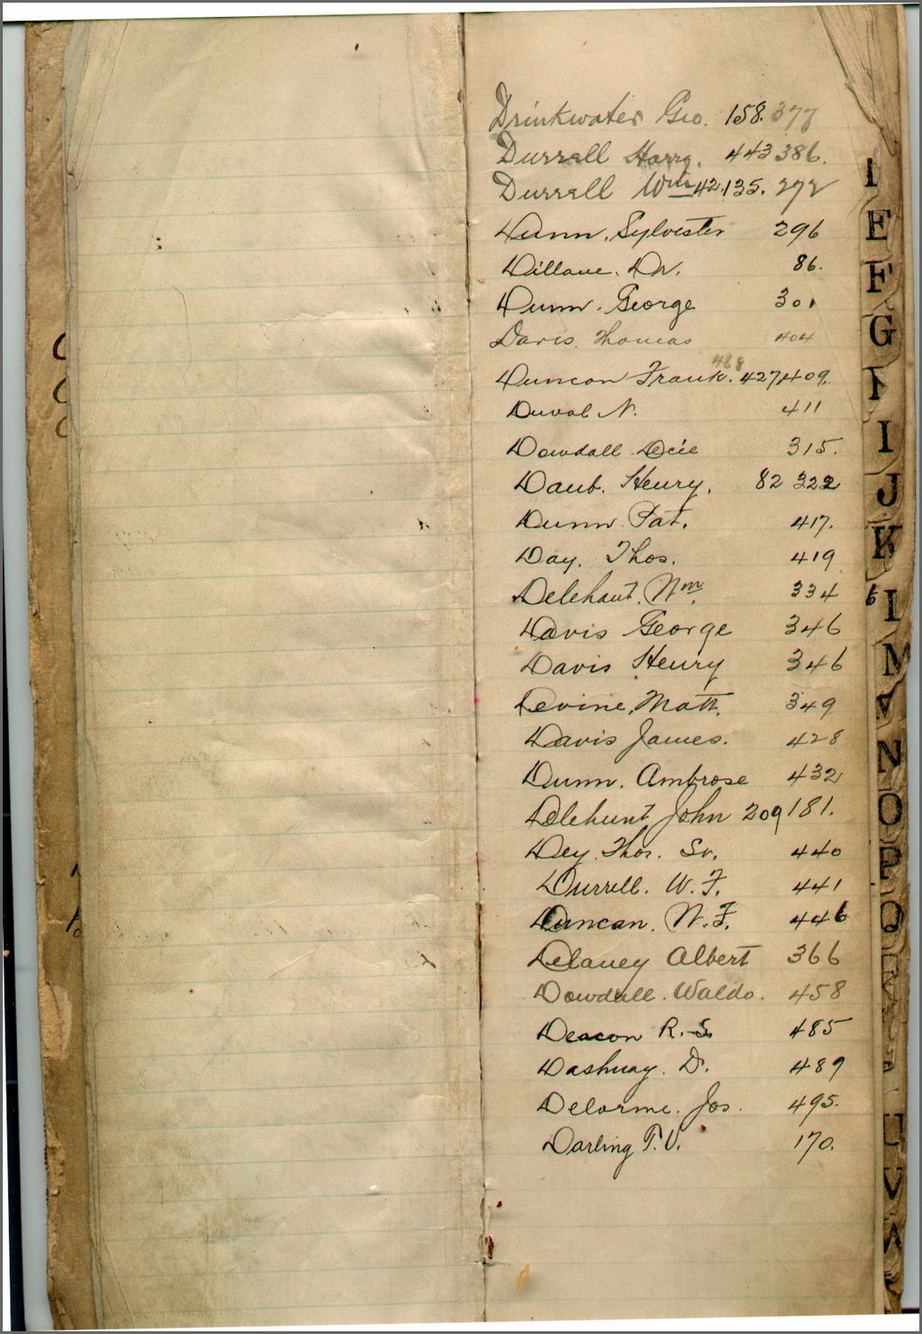 Drinkwater Geo. 158. 377
Durrell Harry. 443 386.
Durrell Wm 42, 135. 272
Dunn, Sylvester 296
Dillane. Dr. 86.
Dunn. George 301
Davis. Thomas 404
468
Duncan Frank. 427, 409.
Duval N. 411
Dowdall 315.
Daub. Henry. 82 322
Dunn Pat. 417.
Day. Thos. 419
Delehaut. Wm. 334
Davis George 346
Davis Henry 346
Devine, Matt. 349
Davis James. 428
Dunn. Ambrose 432
Delehunt John 209 181.
Dey. Thos. Sr. 440
Durrell. W. F. 441
Duncan. W. F. 446
Delaney Albert 366
Dowdall. Waldo. 458
Deacon R. S 485
Dashnay. D. 489
Delorme. Jos. 495.
Darling T. V. 170.
E
F
G
I
J
K
N
O
P
Q
V